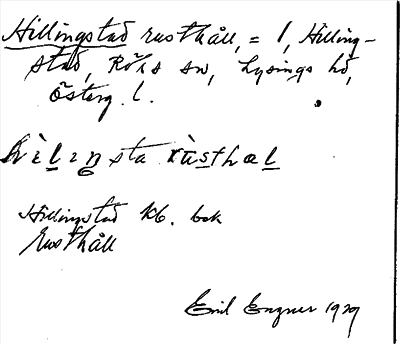 Hillingstad rusthåll, = 1, Hilling-
stad, Röks sn, Lysings hd,
Österg. l.
hìlıŋsta rùsthæl
Hillingstad kb. bok
Rusthåll
Emil Engner 1929